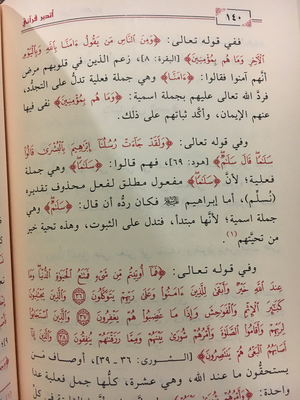 ١٤٠
أتدبر قرآني
ففي قوله تعالى: ﴿وَمِنَ النَّاسِ مَن يَقُولُ ءَامَنَّا بِاللَّهِ وَبِالْيَوْمِ
الْآخِرِ وَمَا هُم بِمُؤْمِنِينَ﴾ [البقرة: ٨]، زعم الذين في قلوبهم مرض
أنهم آمنوا فقالوا: ﴿ءَامَنَّا﴾ وهي جملة فعلية تدلُّ على التجدُّد،
فردَّ الله تعالى عليهم بجملة اسمية: ﴿وَمَا هُم بِمُؤْمِنِينَ﴾ نفى فيها
عنهم الإيمان، وأكَّد ثباتهم على ذلك.
وفي قوله تعالى: ﴿وَلَقَدْ جَاءَتْ رُسُلُنَا إِبْرَاهِيمَ بِالْبُشْرَى قَالُوا
سَلَامًا قَالَ سَلَامٌ﴾ [هود: ٦٩]، فهم قالوا: ﴿سَلَامًا﴾ وهي جملة
فعلية؛ لأنَّ ﴿سَلَامًا﴾ مفعول مطلق لفعل محذوف تقديره
(نُسلِّم)، أما إبراهيم ﷺ فكان ردُّه أن قال: ﴿سَلَامٌ﴾ وهي
جملة اسمية؛ لأنَّها مبتدأ، فتدل على الثبوت، وهذه تحية خير
من تحيتهم(١).
وفي قوله تعالى: ﴿فَمَا أُوتِيتُم مِّن شَيْءٍ فَمَتَاعُ الْحَيَاةِ الدُّنْيَا وَمَا
عِندَ اللَّهِ خَيْرٌ وَأَبْقَى لِلَّذِينَ ءَامَنُوا وَعَلَى رَبِّهِمْ يَتَوَكَّلُونَ ٣٦ وَالَّذِينَ يَجْتَنِبُونَ
كَبَائِرَ الْإِثْمِ وَالْفَوَاحِشَ وَإِذَا مَا غَضِبُوا هُمْ يَغْفِرُونَ ٣٧ وَالَّذِينَ اسْتَجَابُوا
لِرَبِّهِمْ وَأَقَامُوا الصَّلَاةَ وَأَمْرُهُمْ شُورَى بَيْنَهُمْ وَمِمَّا رَزَقْنَاهُمْ يُنفِقُونَ ٣٨ وَالَّذِينَ إِذَا
أَصَابَهُمُ الْبَغْيُ هُمْ يَنتَصِرُونَ﴾ [الشورى: ٣٦ - ٣٩]، أوصاف من
يستحقُّون ما عند الله، وهي عشرة، كلُّها جمل فعلية عدا
واحدة: